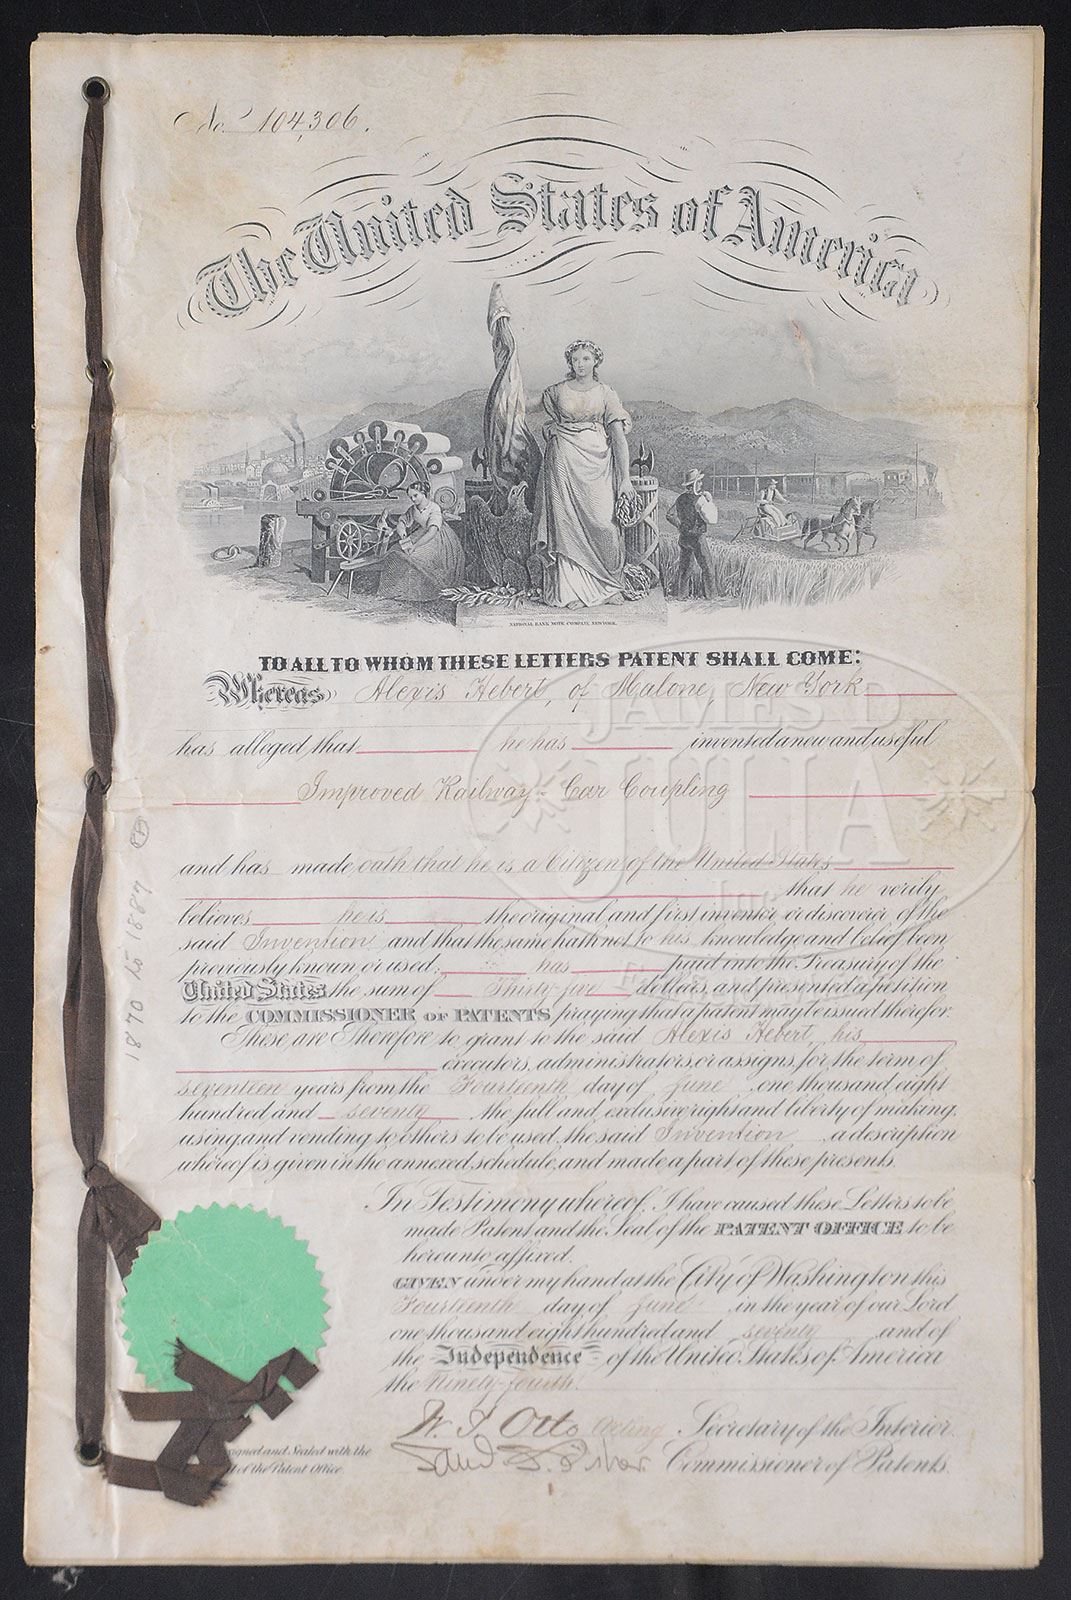 No. 104,306.
The United States of America
NATIONAL BANK NOTE COMPANY, NEW YORK.
TO ALL TO WHOM THESE LETTERS PATENT SHALL COME:
Whereas Alexis Hebert, of Malone, New York
has alleged that he has invented a new and useful
Improved Railway-Car Coupling
and has made oath that he is a Citizen of the United States
that he verily
believes he is the original and first inventor or discoverer of the
said Invention and that the same hath not to his knowledge and belief been
previously known or used; has paid into the Treasury of the
United States the sum of Thirty-five dollars, and presented a petition
to the COMMISSIONER OF PATENTS praying that a patent may be issued therefor.
These are Therefore to grant to the said Alexis Hebert, his
executors, administrators, or assigns, for the term of
seventeen years from the Fourteenth day of June one thousand eight
hundred and seventy the full and exclusive right and liberty of making,
using, and vending to others to be used, the said Invention, a description
whereof is given in the annexed schedule, and made a part of these presents.
In Testimony whereof, I have caused these Letters to be
made Patent and the Seal of the PATENT OFFICE to be
hereunto affixed.
GIVEN under my hand at the City of Washington this
Fourteenth day of June in the year of our Lord
one thousand eight hundred and seventy and of
the Independence of the United States of America
the Ninety-fourth.
W. T. Otto Acting Secretary of the Interior.
Saml. S. Fisher Commissioner of Patents.
and Sealed with the
of the Patent Office
1870 to 1887
JAMES D
JULIA
Inc